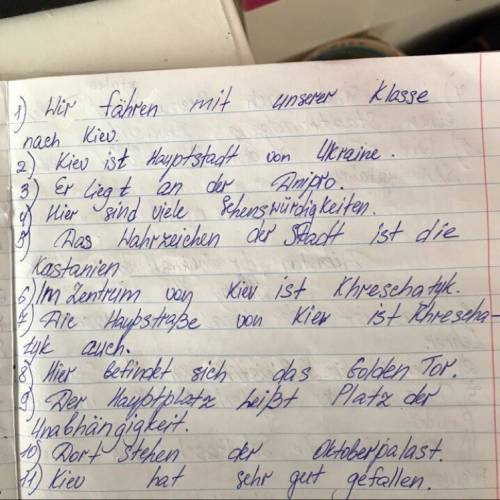 1) Wir fähren mit unserer Klasse
nach Kiev.
2) Kiev ist Hauptstadt von Ukraine.
3) Er liegt an der Dnipro.
4) Hier sind viele Sehenswürdigkeiten.
5) Das Wahrzeichen der Stadt ist die
Kastanien
6) Im Zentrum von Kiev ist Khreschatyk.
7) Die Haupstraße von Kiev ist Khrescha-
tyk auch.
8) Hier befindet sich das Golden Tor.
9) Der Hauptplatz heißt Platz der
Unabhängigkeit.
10) Dort stehen der Oktoberpalast.
11) Kiev hat sehr gut gefallen.